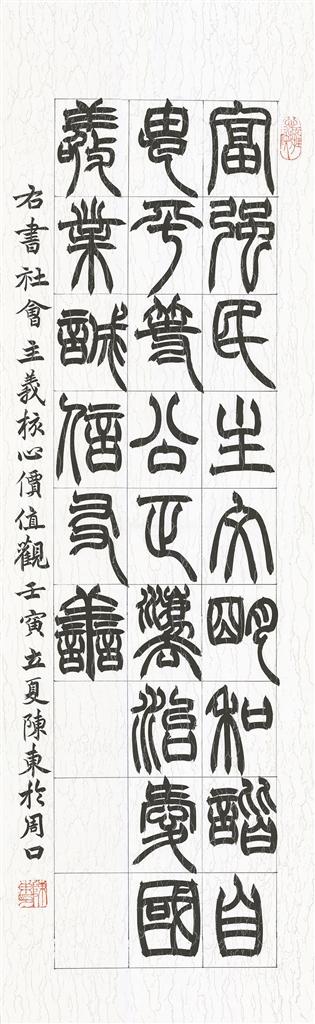 富強民主文明和諧自
由平等公正灋治愛國
敬業誠信友善
右書社會主義核心價值觀壬寅立夏陳東於周口